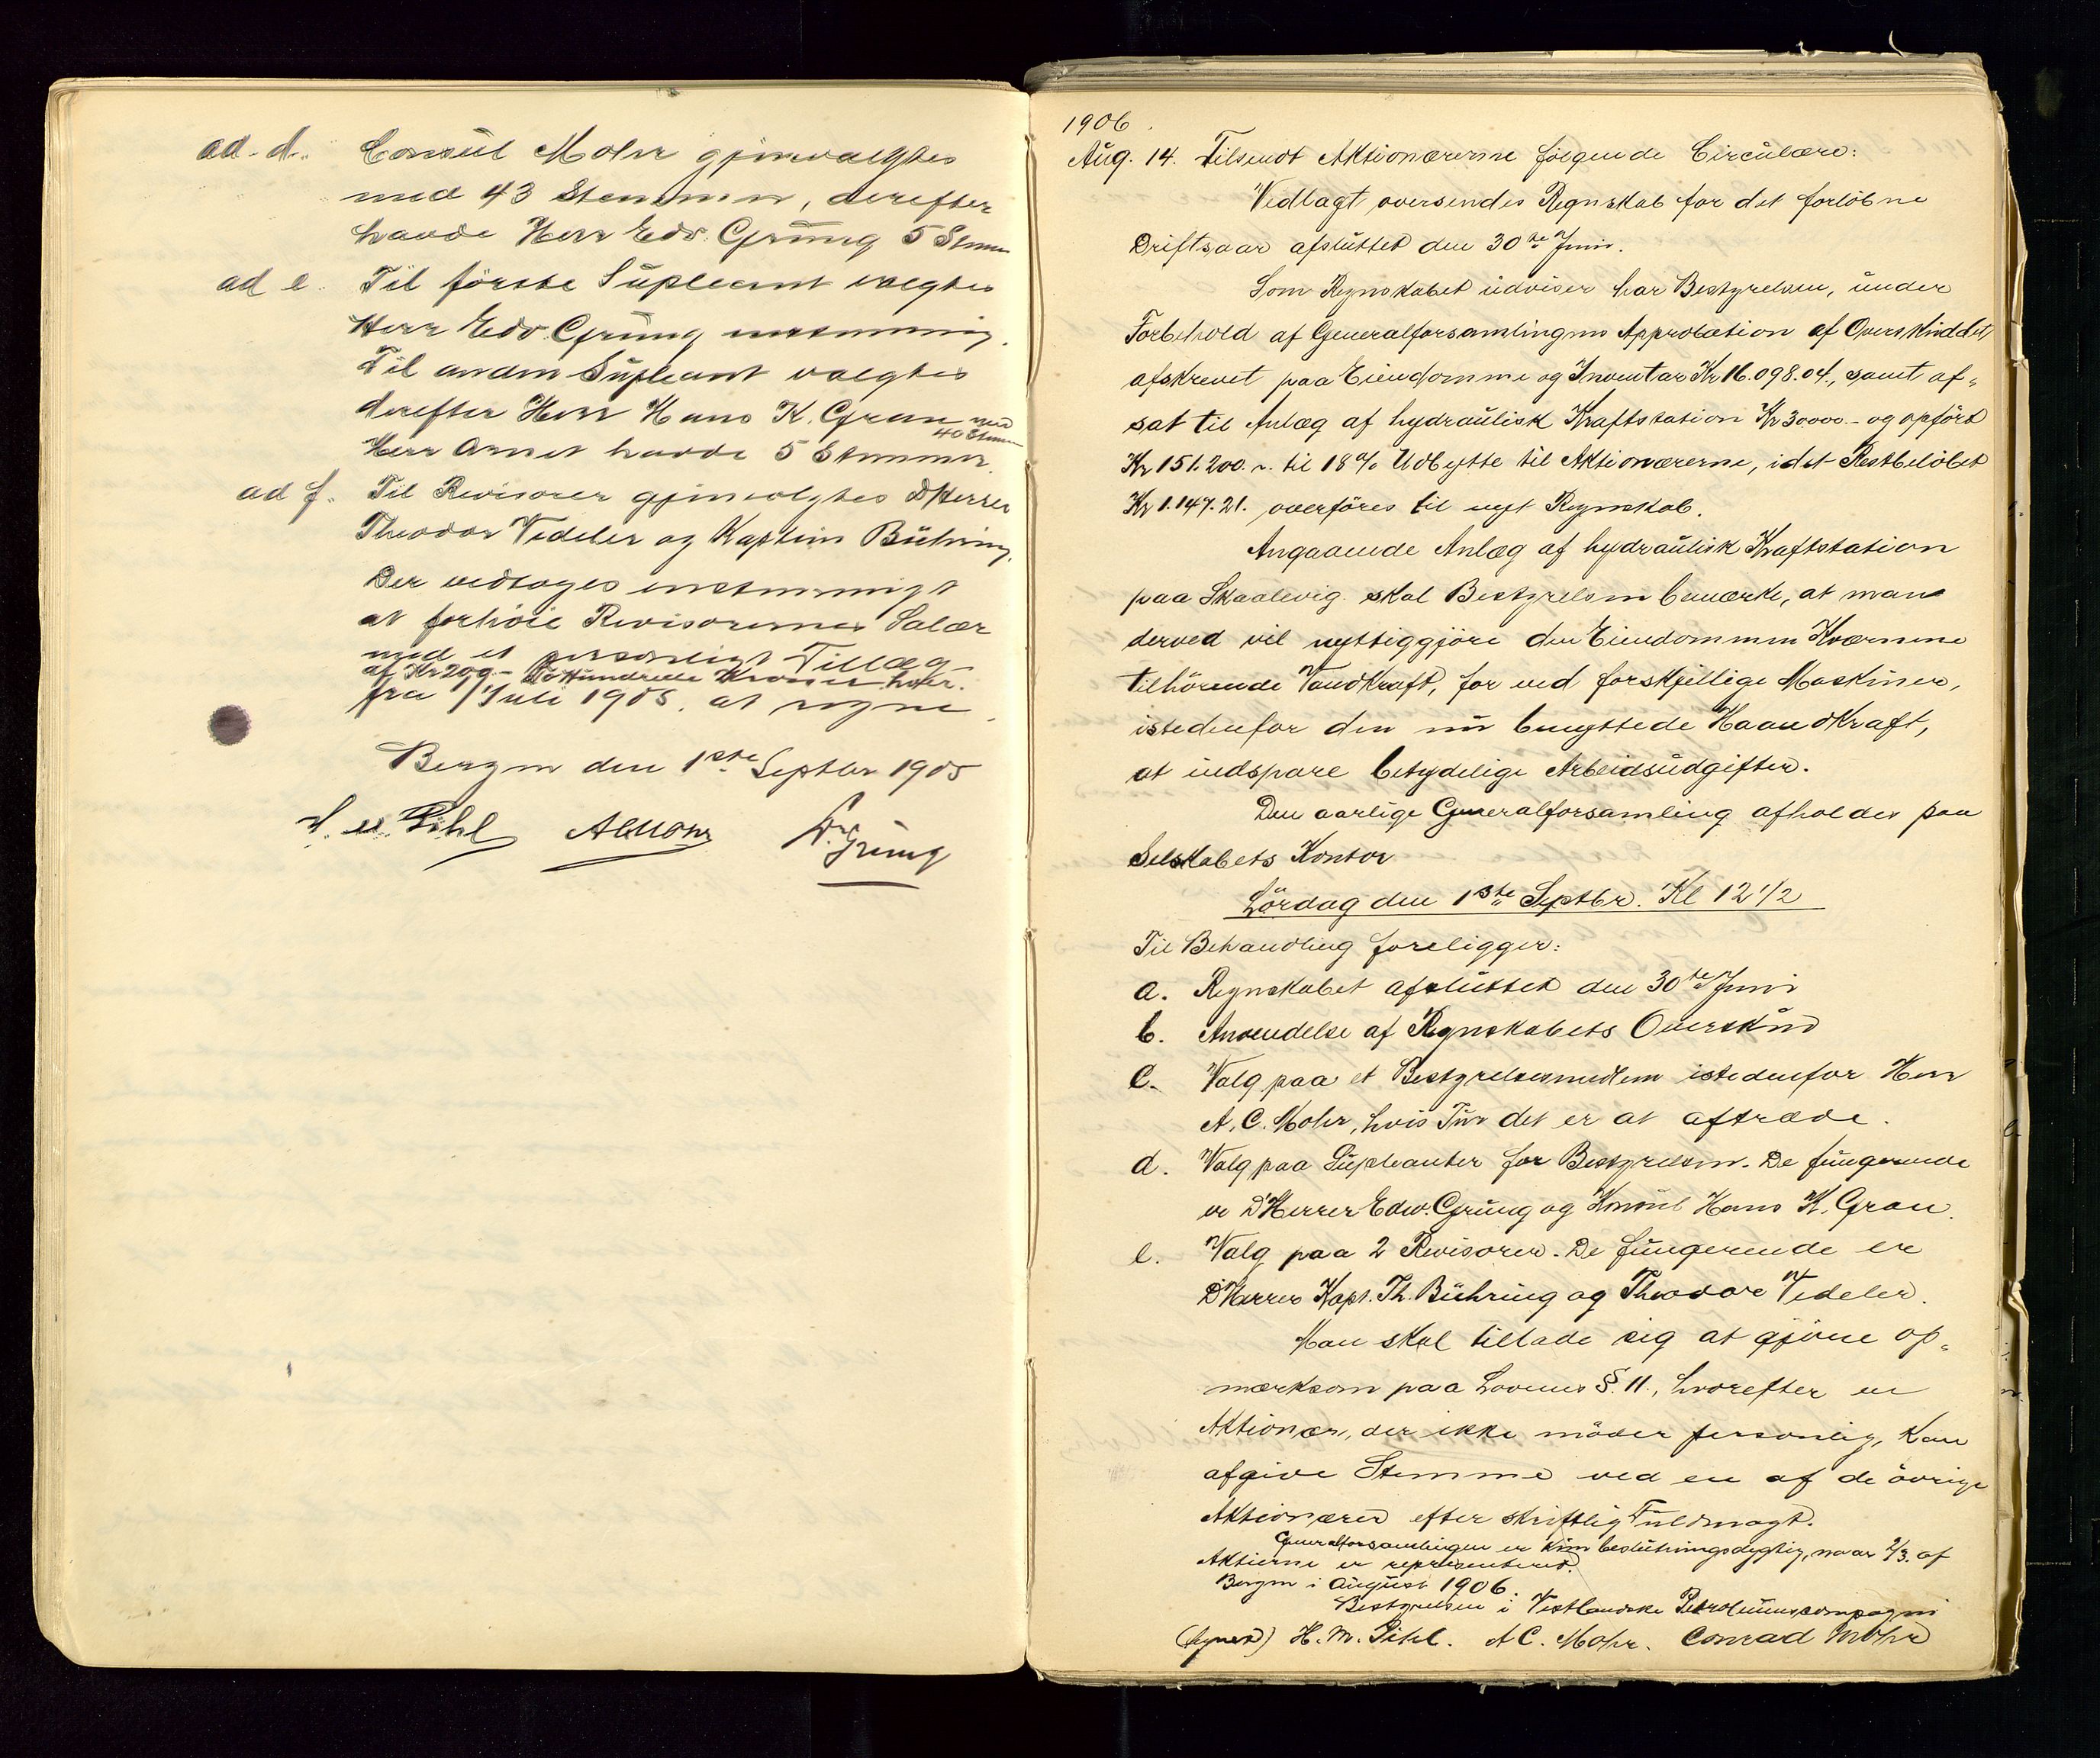 ad. d. Consul Mohr gjenvalgtes
med 43 Stemmer, derefter
havde Herr Edv. Grung 5 Stem
ad e. Til förste Supleant valgtes
Herr Edv. Grung enstemmig.
Til anden Supleant valgtes
derefter Herr Hans K. Gran med
40 Stem
Herr Arnet havde 5 Stemmer.
ad f. Til Revisorer gjenvalgtes D'Herrer
Theodor Vedeler og Kaptein Bühring.
Der vedtoges enstemmigt
at forhöie Revisorernes Salær
med et personligt Tillæg
af Kr 200 - To Hundrede Kroner hver.
fra 1 Juli 1905. at regne.
Bergen den 1ste Septbr 1905
H. M. Gihl ACMohr Edv. Grung
1906.
Aug. 14. Tilsendt Aktionærerne fölgende Circulære:
Vedlagt oversendes Regnskab for det forlöbne
Driftsaar afsluttet den 30te Juni.
Som Regnskabet udviser har Bestyrelsen, under
Forbehold af Generalforsamlingens Approbation af Overskuddet,
afskrevet paa Eiendomme og Inventar Kr 16.098.04., samt af-
sat til Anlæg af hydraulisk Kraftstation Kr 30000.- og opfört
Kr 151.200. - til 18% Udbytte til Aktionærerne, idet Restbelöbet
Kr 1.147.21. overföres til nyt Regnskab.
Angaaende Anlæg af hydraulisk Kraftstation
paa Skaalevig skal Bestyrelsen bemærke, at man
derved vil nyttiggjöre den Eiendommen Kværnene
tilhörende Vandkraft, for ved forskjellige Maskiner,
istedenfor den nu benyttede Haandkraft,
at indspare betydelige Arbeidsudgifter.
Den aarlige Generalforsamling afholdes paa
Selskabets Kontor
Lördag den 1ste Septbr. Kl 12 1/2
Til Behandling foreligger:
a. Regnskabet afsluttet den 30te Juni
b. Anvendelse af Regnskabets Overskud
c. Valg paa et Bestyrelsesmedlem istedenfor Herr
A. C. Mohr, hvis Tur det er at aftræde.
d. Valg paa Supleanter for Bestyrelsen. De fungerende
er D'Herrer Edw. Grung og Konsul Hans K. Gran.
e. Valg paa 2 Revisorer. De fungerende er
D'Herrer Kapt. Th. Bühring og Theodor Vedeler.
Man skal tillade sig at gjöre op-
mærksom paa Lovenes §. 11., hvorefter en
Aktionær, der ikke möder personlig, kan
afgive Stemme ved en af de övrige
Aktionærer efter skriftlig Fuldmagt.
Generalforsamlingen er kun beslutningsdygtig, naar 2/3. af
Aktierne er repræsenteret.
Bergen i August 1906.
Bestyrelsen i Vestlandske Petroleumscompagni
(signed) H. M. Gihl. A C. Mohr. Conrad Mohr